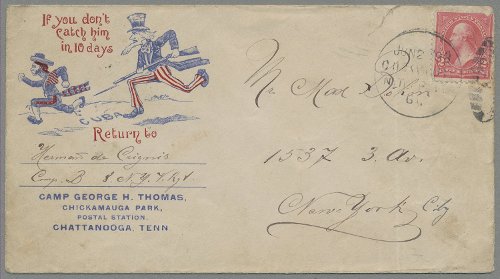 If you don't
catch him
in 10 days
CUBA
Return to
Herman de
Comp. B 8 N.Y. V.
CAMP GEORGE H. THOMAS,
CHICKAMAUGA PARK,
POSTAL STATION.
CHATTANOOGA, TENN
Mr. Mad
1537 3. Av.
New York City